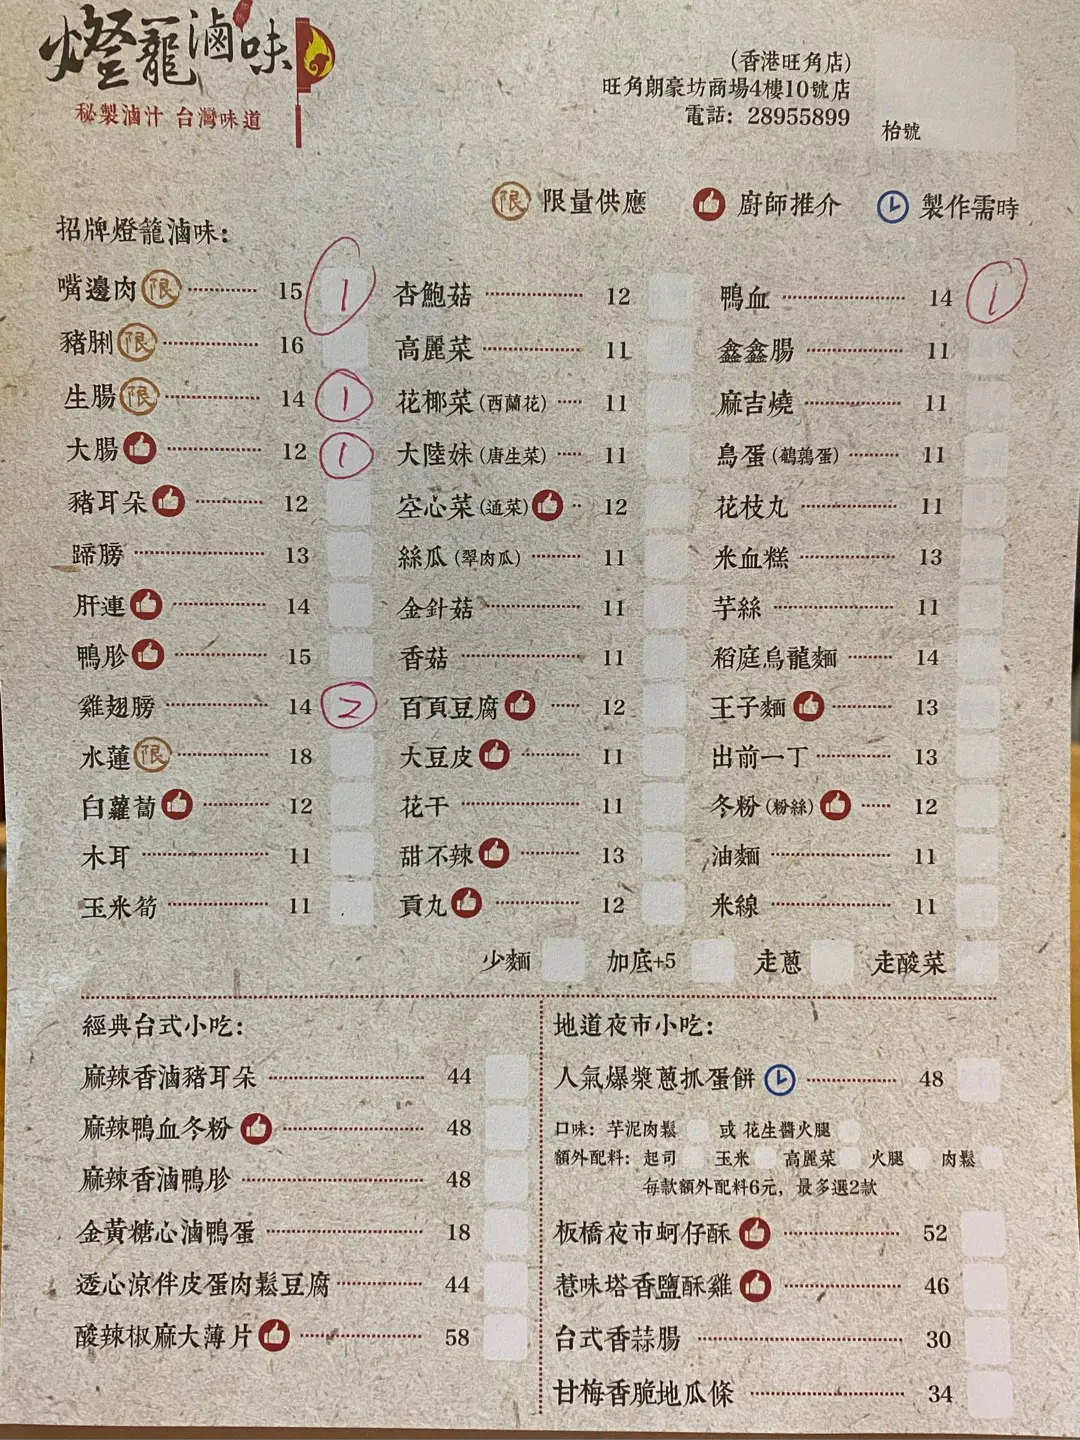 燈籠滷味
秘製滷汁 台灣味道
(香港旺角店)
旺角朗豪坊商場4樓10號店
電話：28955899
枱號
限 限量供應 廚師推介 製作需時
招牌燈籠滷味：
嘴邊肉 限 15 1
豬脷 限 16
生腸 限 14 1
大腸 12 1
豬耳朵 12
蹄膀 13
肝連 14
鴨胗 15
雞翅膀 14 2
水蓮 限 18
白蘿蔔 12
木耳 11
玉米筍 11
杏鮑菇 12
高麗菜 11
花椰菜(西蘭花) 11
大陸妹(唐生菜) 11
空心菜(通菜) 12
絲瓜(翠肉瓜) 11
金針菇 11
香菇 11
百頁豆腐 12
大豆皮 11
花干 11
甜不辣 13
貢丸 12
鴨血 14 1
鑫鑫腸 11
麻吉燒 11
鳥蛋(鵪鶉蛋) 11
花枝丸 11
米血糕 13
芋絲 11
稻庭烏龍麵 14
王子麵 13
出前一丁 13
冬粉(粉絲) 12
油麵 11
米線 11
少麵 加底+5 走蔥 走酸菜
經典台式小吃：
麻辣香滷豬耳朵 44
麻辣鴨血冬粉 48
麻辣香滷鴨胗 48
金黃糖心滷鴨蛋 18
透心涼伴皮蛋肉鬆豆腐 44
酸辣椒麻大薄片 58
地道夜市小吃：
人氣爆漿蔥抓蛋餅 48
口味：芋泥肉鬆 或 花生醬火腿
額外配料：起司 玉米 高麗菜 火腿 肉鬆
每款額外配料6元，最多選2款
板橋夜市蚵仔酥 52
惹味塔香鹽酥雞 46
台式香蒜腸 30
甘梅香脆地瓜條 34